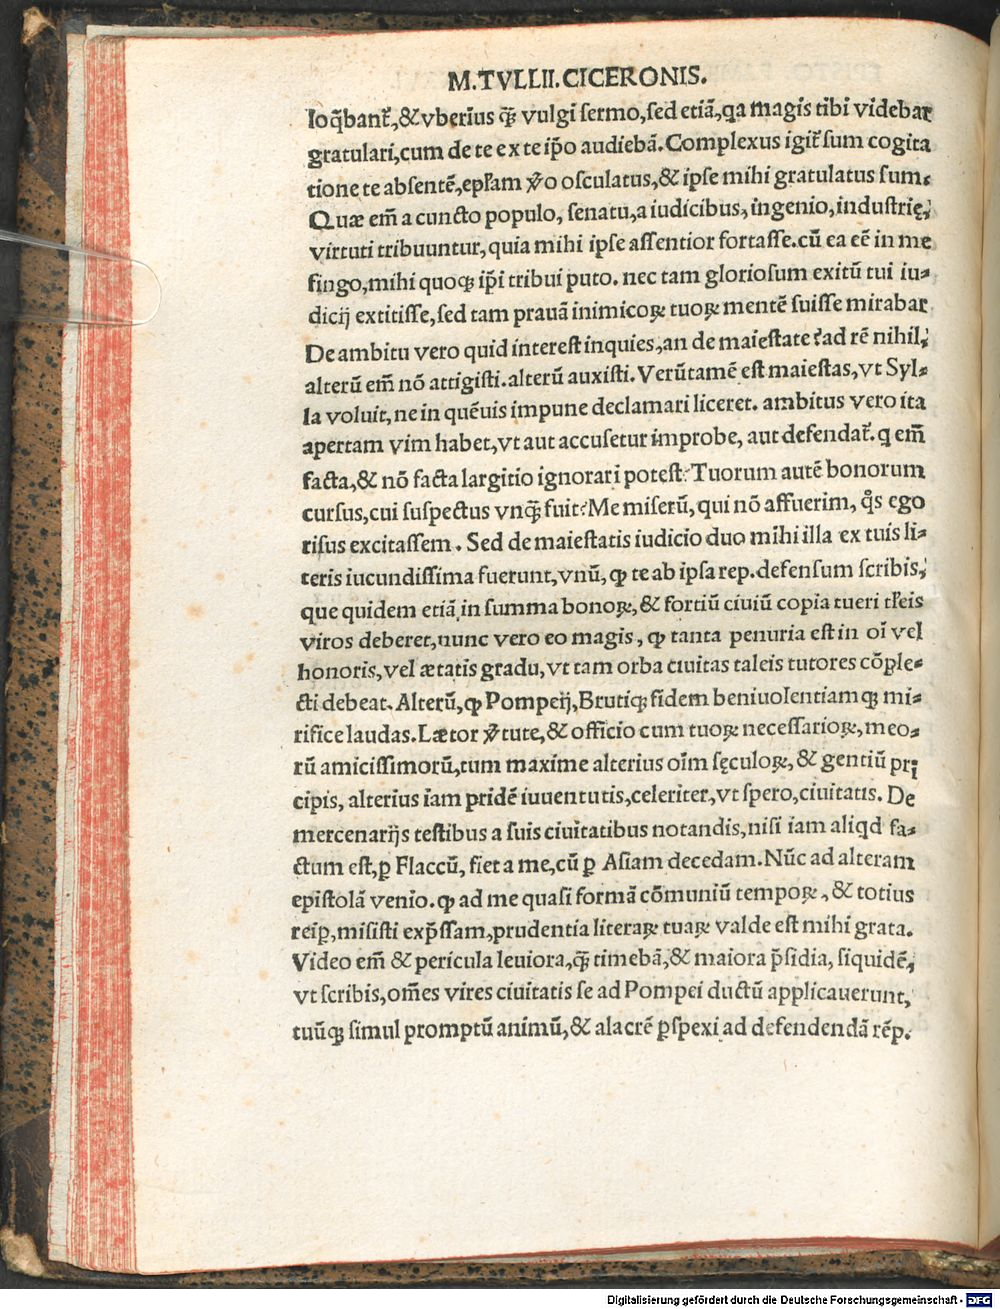 M.TVLLII.CICERONIS.
loq̃bant᷑,&vberius q̃ꝫ vulgi sermo,sed etiã,qa magis tibi videbar
gratulari,cum de te ex te ip̃o audiebã.Complexus igit᷑ sum cogita
tione te absentẽ,ep̃lam ꝟo osculatus,& ipse mihi gratulatus sum.
Quæ em̃ a cuncto populo, senatu,a iudicibus, ingenio,industrię,
virtuti tribuuntur,quia mihi ipse assentior fortasse.cũ ea eẽ in me
fingo,mihi quoqꝫ ip̃i tribui puto. nec tam gloriosum exitũ tui iu-
dicij extitisse,sed tam prauã inimicoꝝ tuoꝝ mentẽ fuisse mirabar
De ambitu vero quid interest inquies,an de maiestate?ad rẽ nihil,
alterũ em̃ nõ attigisti.alterũ auxisti.Verũtamẽ est maiestas,vt Syl-
la voluit,ne in quẽuis impune declamari liceret. ambitus vero ita
apertam vim habet,vt aut accusetur improbe, aut defendat᷑. q em̃
facta,& nõ facta largitio ignorari potest?Tuorum autẽ bonorum
cursus,cui suspectus vnq̃ꝫ fuit?Me miserũ,qui nõ affuerim, q̊s ego
risus excitassem. Sed de maiestatis iudicio duo mihi illa ex tuis li-
teris iucundissima fuerunt,vnũ, ꝙ te ab ipsa rep.defensum scribis,
que quidem etiã in summa bonoꝝ,& fortiũ ciuiũ copia tueri tl̃eis
viros deberet,nunc vero eo magis, ꝙ tanta penuria est in oĩ vel
honoris,vel ætatis gradu,vt tam orba ciuitas taleis tutores cõple-
cti debeat. Alterũ,ꝙ Pompeij,Brutiqꝫ fidem beniuolentiamqꝫ mi-
rifice laudas.Lætor ꝟtute,& officio cum tuoꝝ necessarioꝝ,meo-
rũ amicissimorũ,tum maxime alterius oĩm sęculoꝝ,& gentiũ pri
cipis, alterius iam pridẽ iuuentutis,celeriter,vt spero,ciuitatis. De
mercenarijs testibus a suis ciuitatibus notandis,nisi iam aliqd fa-
ctum est,ꝑ Flaccũ, fiet a me,cũ ꝑ Asiam decedam.Nũc ad alteram
epistolã venio.ꝙ ad me quasi formã cõmuniũ tempoꝝ, & totius
reip̄,misisti exp̃ssam,prudentia literaꝝ tuaꝝ valde est mihi grata.
Video em̃ & pericula leuiora,q̃ꝫ timebã,& maiora p̃sidia, siquidẽ,
vt scribis,om̃es vires ciuitatis se ad Pompei ductũ applicauerunt,
tuũqꝫ simul promptũ animũ,& alacrẽ ꝑspexi ad defendendã rẽp.
Digitalisierung gefördert durch die Deutsche Forschungsgemeinschaft - DFG